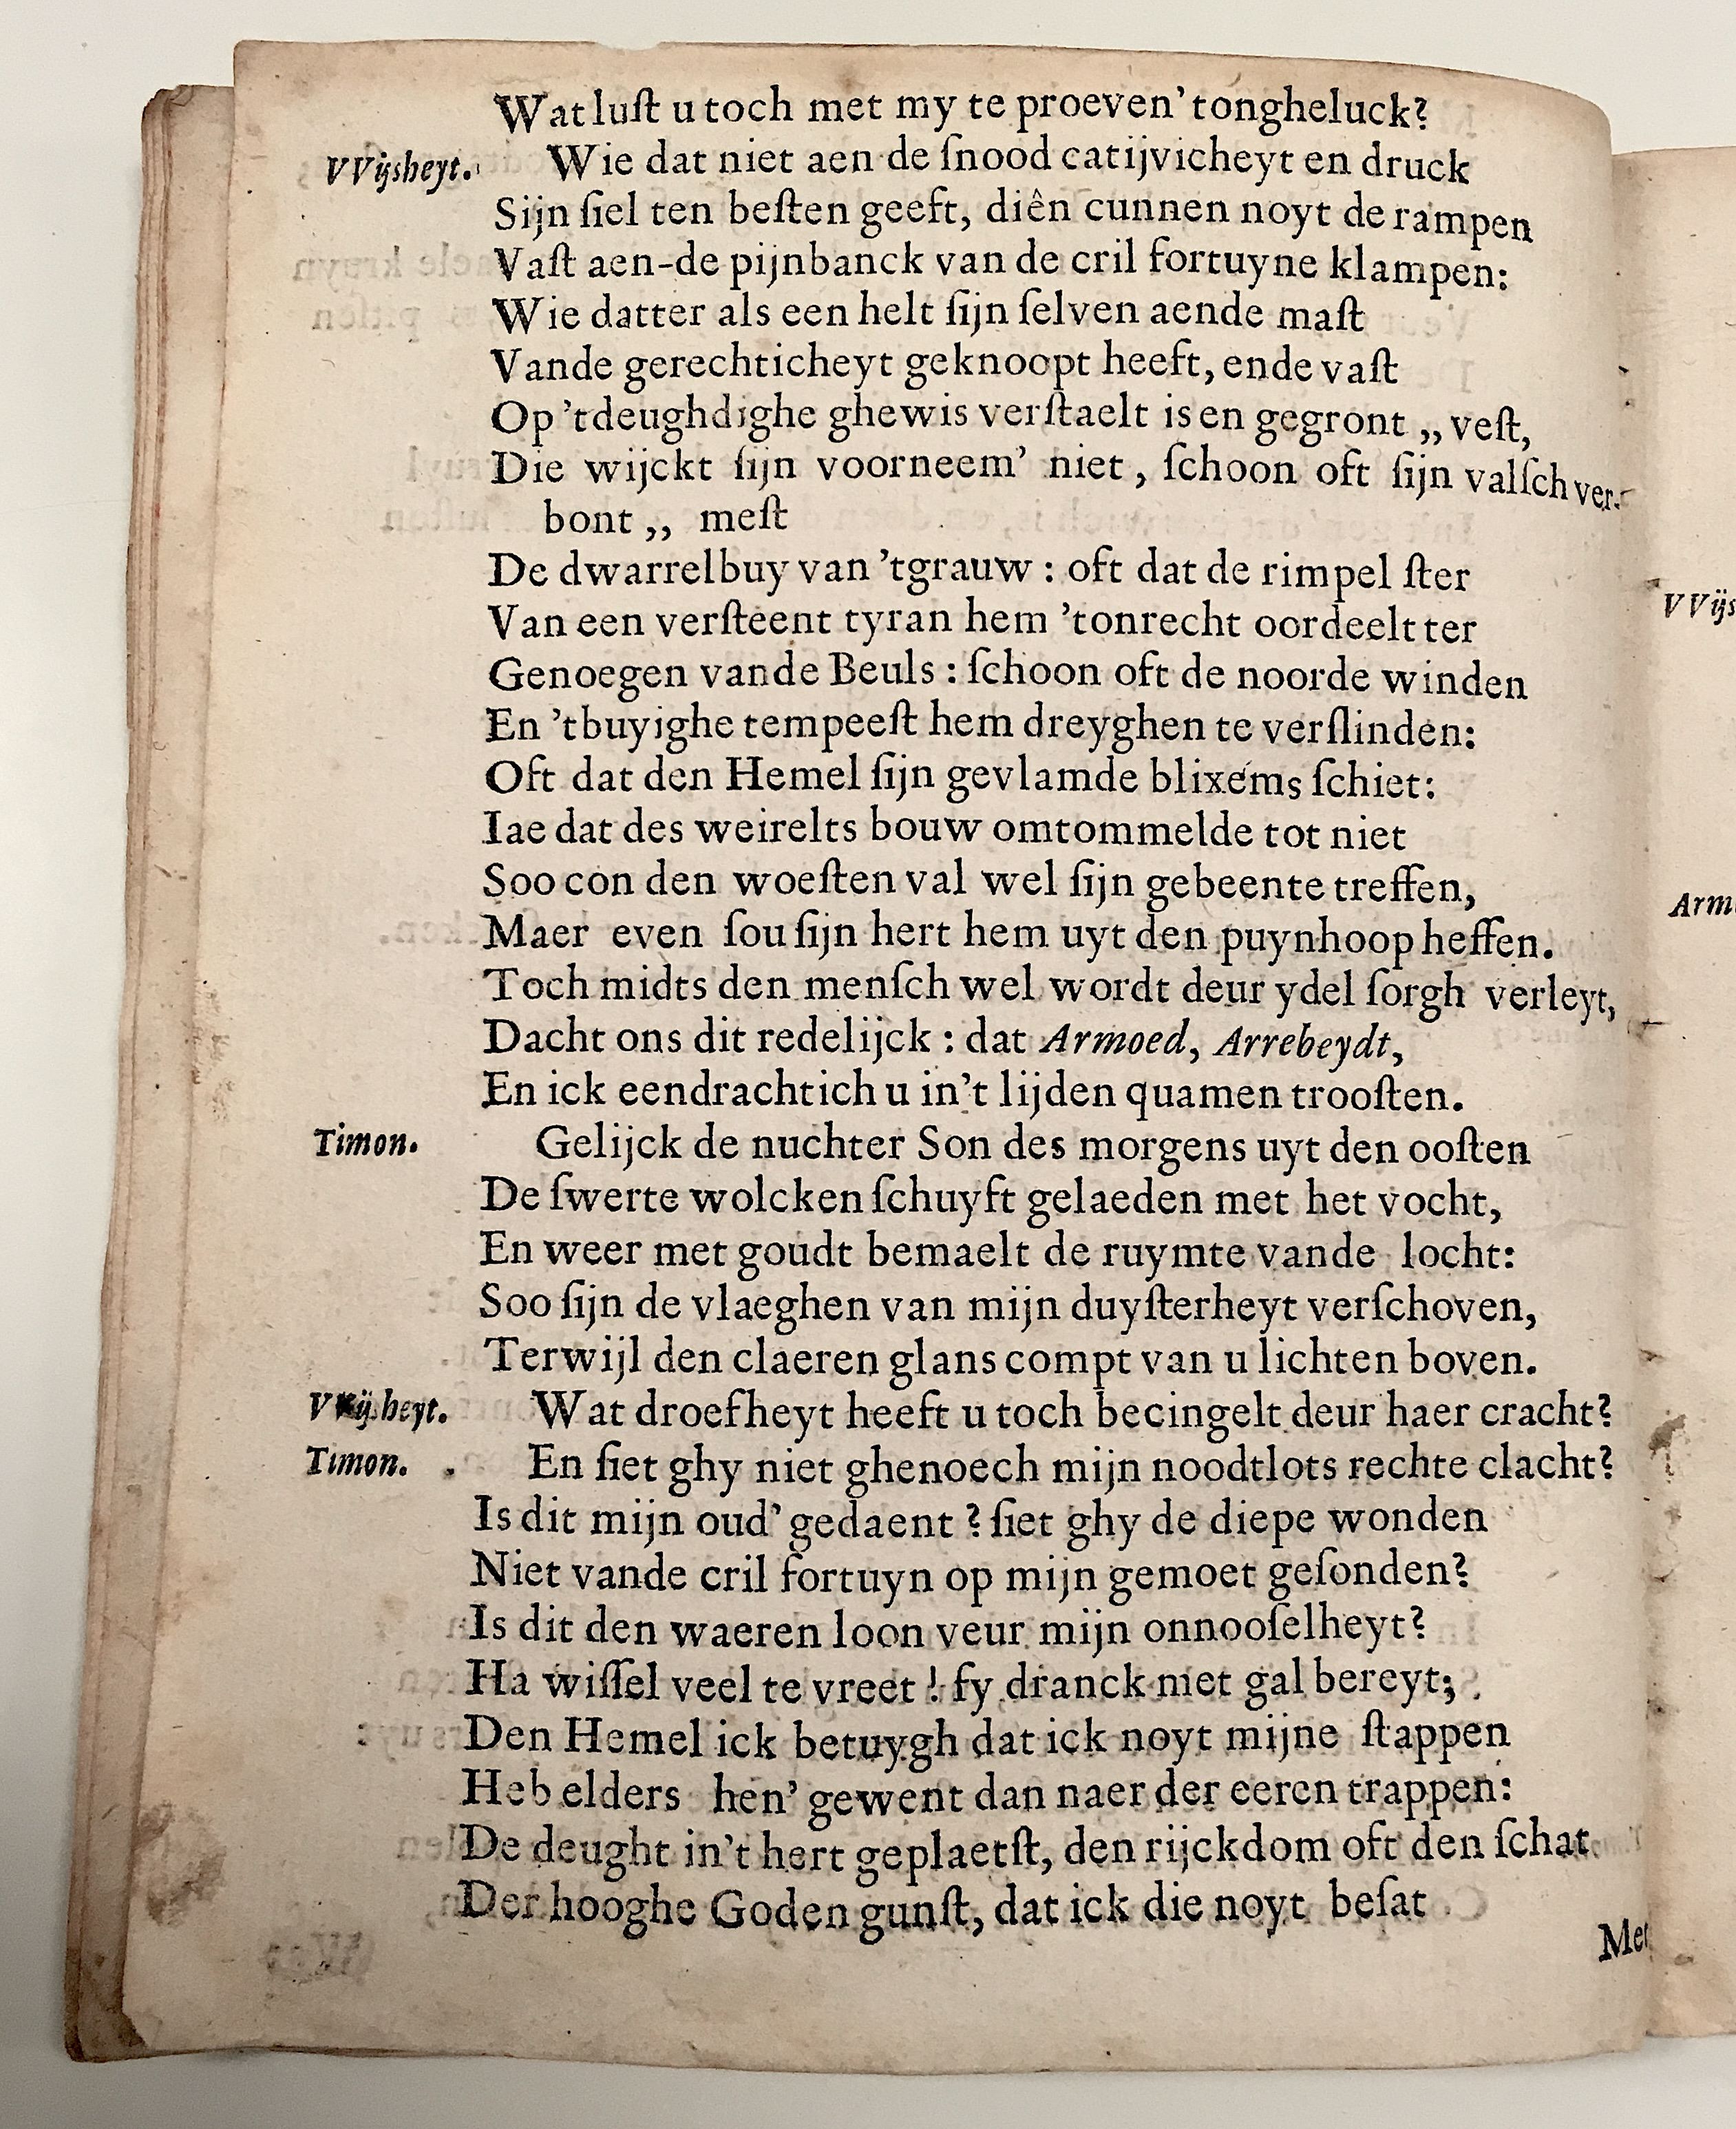 Wat luſt u toch met my te proeven' tongheluck?
VVijsheyt. Wie dat niet aen de ſnood catijvicheyt en druck
Sijn ſiel ten beſten geeft, diên cunnen noyt de rampen
Vaſt aen-de pijnbanck van de cril fortuyne klampen:
Wie datter als een helt ſijn ſelven aende maſt
Vande gerechticheyt geknoopt heeft, ende vaſt
Op 'tdeughdighe ghewis verſtaelt is en gegront „ veſt,
Die wijckt ſijn voorneem' niet, ſchoon oft ſijn valſch ver-
bont „ meſt
De dwarrelbuy van 'tgrauw : oft dat de rimpel ſter
Van een verſteent tyran hem 'tonrecht oordeelt ter
Genoegen vande Beuls : ſchoon oft de noorde winden
En 'tbuyighe tempeeſt hem dreyghen te verſlinden:
Oft dat den Hemel ſijn gevlamde blixems ſchiet:
Iae dat des weirelts bouw omtommelde tot niet
Soo con den woeſten val wel ſijn gebeente treffen,
Maer even ſou ſijn hert hem uyt den puynhoop heffen.
Toch midts den menſch wel wordt deur ydel ſorgh verleyt,
Dacht ons dit redelijck : dat Armoed, Arrebeydt,
En ick eendrachtich u in't lijden quamen trooſten.
Timon. Gelijck de nuchter Son des morgens uyt den ooſten
De ſwerte wolcken ſchuyft gelaeden met het vocht,
En weer met goudt bemaelt de ruymte vande locht:
Soo ſijn de vlaeghen van mijn duyſterheyt verſchoven,
Terwijl den claeren glans compt van u lichten boven.
VVijsheyt. Wat droefheyt heeft u toch becingelt deur haer cracht?
Timon. En ſiet ghy niet ghenoech mijn noodtlots rechte clacht?
Is dit mijn oud' gedaent ? ſiet ghy de diepe wonden
Niet vande cril fortuyn op mijn gemoet geſonden?
Is dit den waeren loon veur mijn onnooſelheyt?
Ha wiſſel veel te vreet ! fy dranck met gal bereyt;
Den Hemel ick betuygh dat ick noyt mijne ſtappen
Heb elders hen' gewent dan naer der eeren trappen:
De deught in't hert geplaetſt, den rijckdom oft den ſchat
Der hooghe Goden gunſt, dat ick die noyt beſat
Met